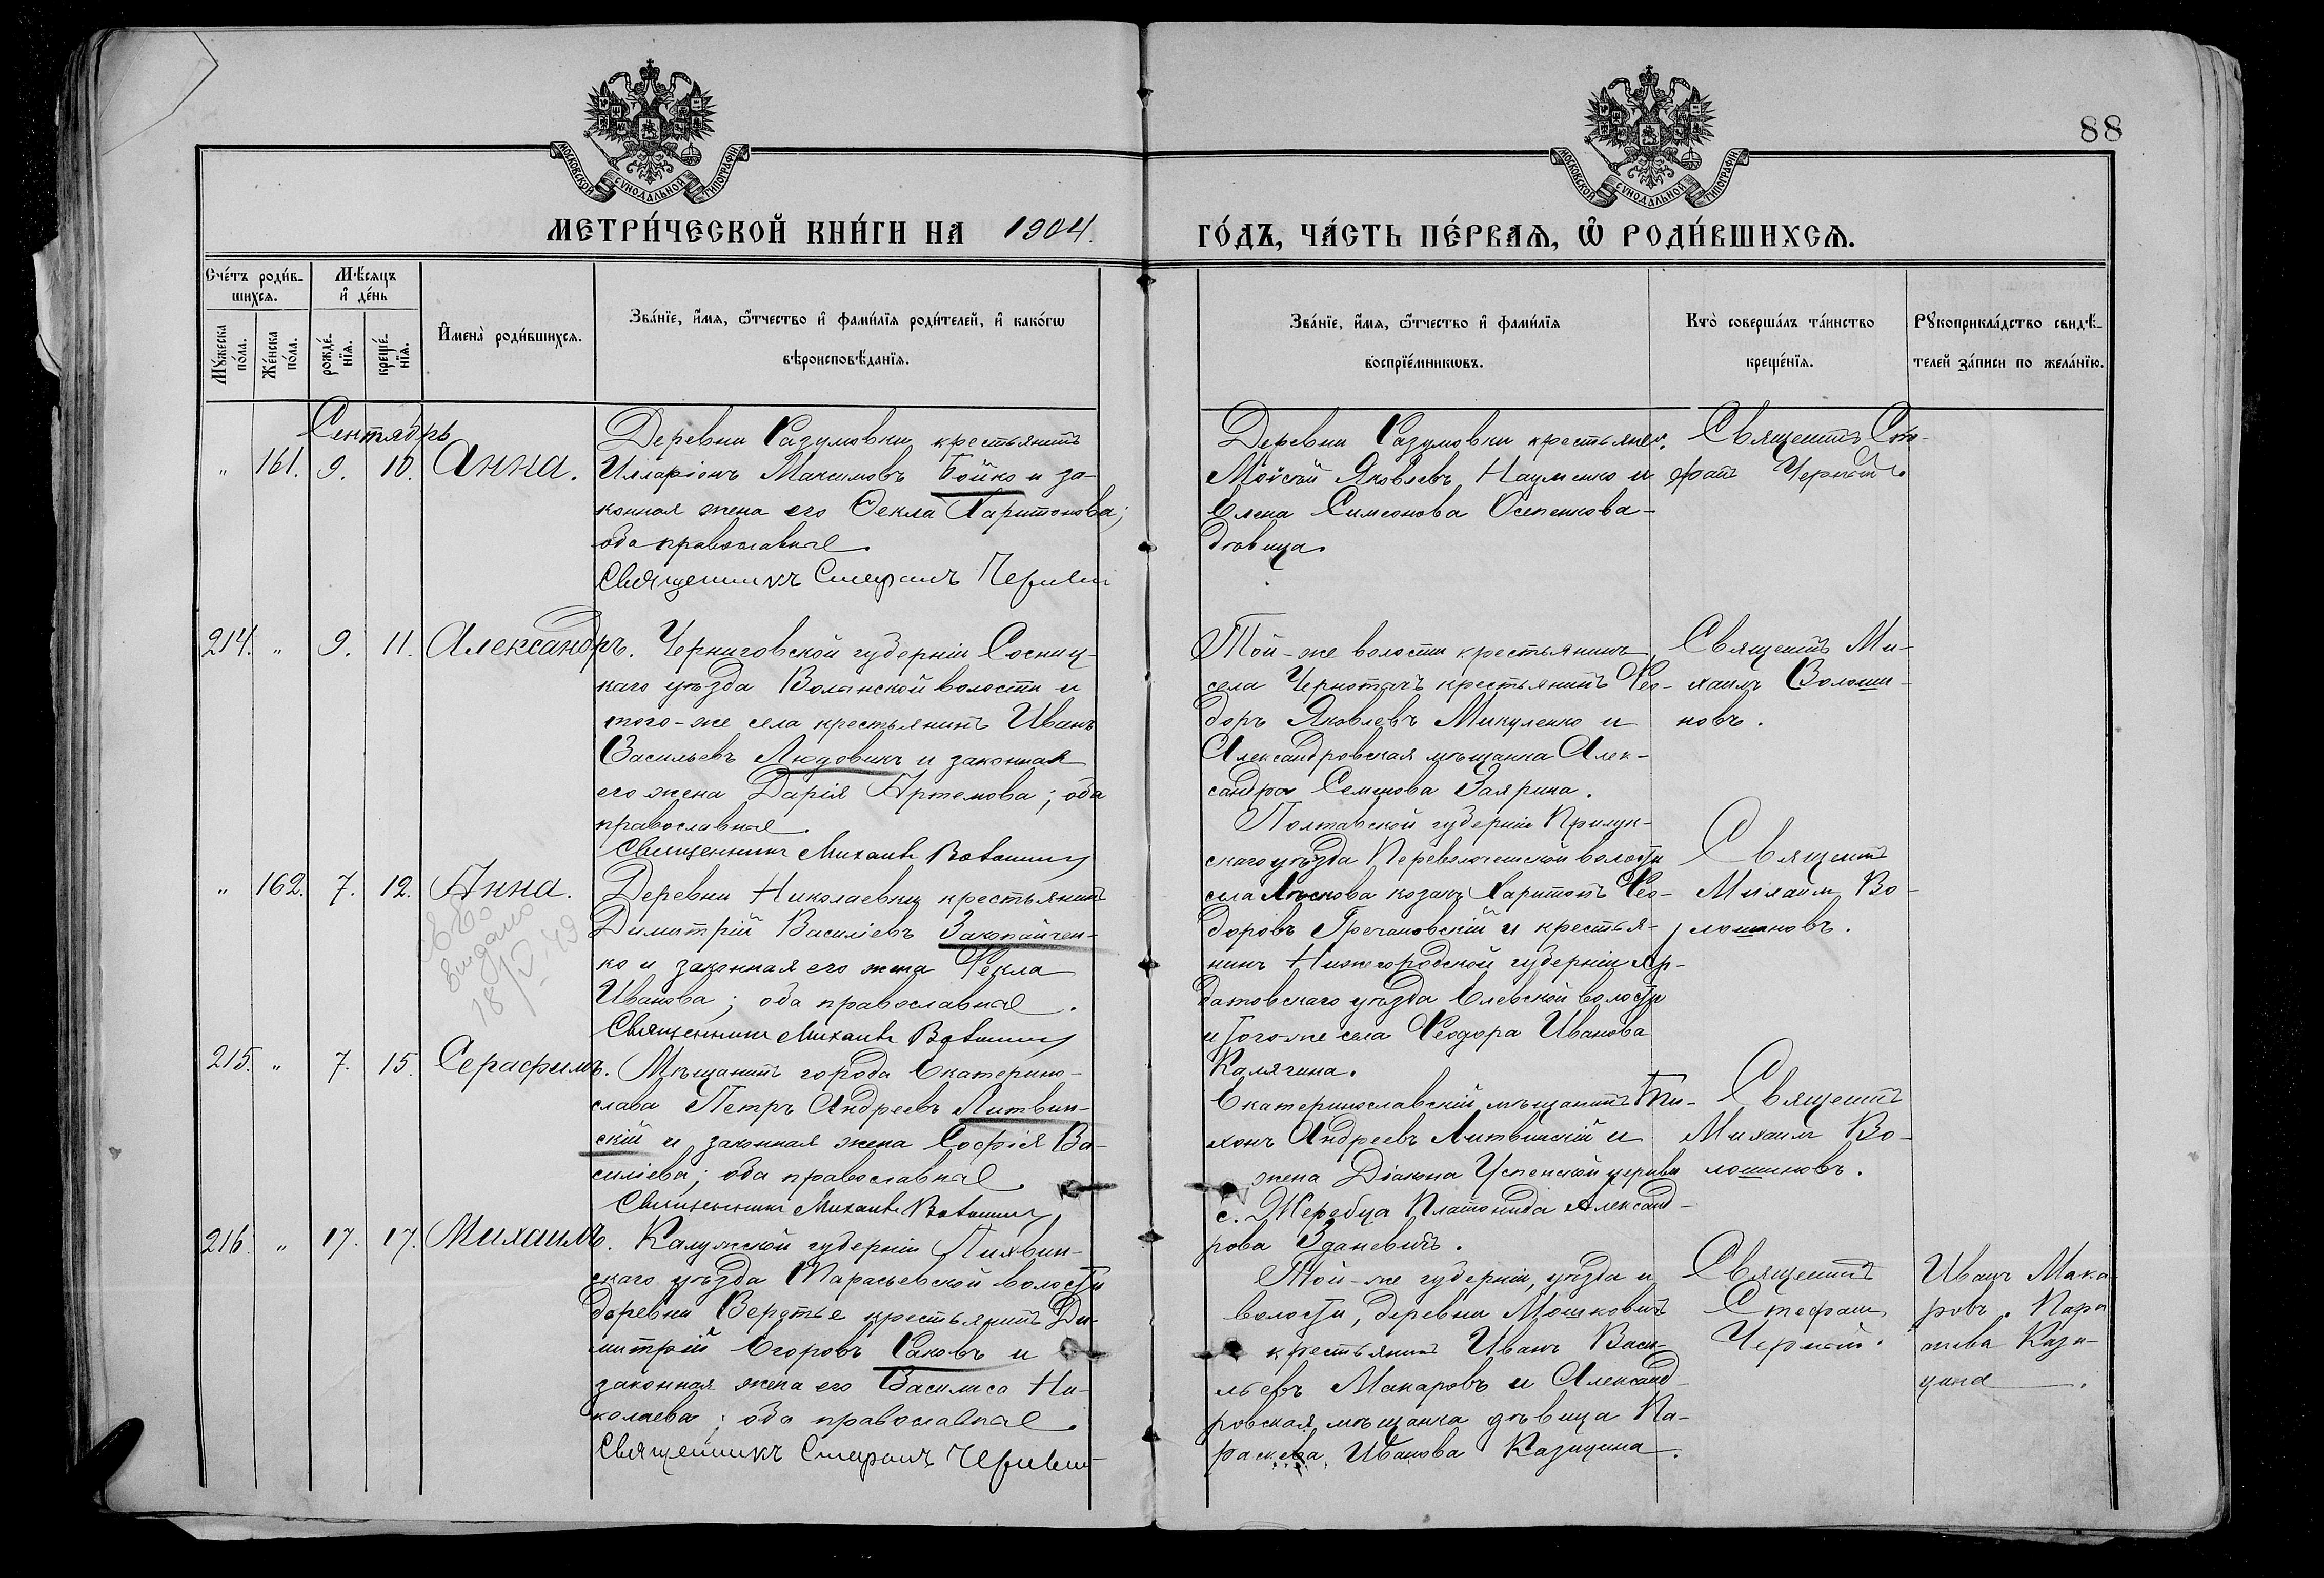 88
МОСКОВСКОЙ СУНОДАЛЬНОЙ ТИПОГРАФІИ
МОСКОВСКОЙ СУНОДАЛЬНОЙ ТИПОГРАФІИ
МЕТРИ́ЧЕСКОЙ КНИ́ГИ НА 1904.
ГО́ДЪ, ЧА́СТЬ ПЕ́РВАѦ, Ѡ РОДИ́ВШИХСѦ.
Сче́тъ роди́в-
шихсѧ.
Мꙋ́жеска по́ла.
Же́нска по́ла.
Мѣ́сяцъ
и҆ де́нь
рожде́-
нїѧ.
креще́-
нїѧ.
И҆мена̀ роди́вшихсѧ.
Зва́нїе, и҆́мѧ, ѻ҆́тчество и҆ фами́лїѧ роди́телей, и҆ како́гѡ
вѣроисповѣ́данїѧ.
Зва́нїе, и҆́мѧ, ѻ҆́тчество и҆ фами́лїѧ
воспрїе́мникѡвъ.
Кто̀ соверша́лъ та́инство
креще́нїѧ.
Рꙋкоприкла́дство свидѣ́-
телей за́писи по жела́нїю.
Сентябрь
" 161. 9. 10. Анна.
Деревни Разумовки крестьянинъ
Илларіонъ Максимовъ Бойко и за-
конная жена его Ѳекла Харитонова;
оба православные.
Священникъ Стефанъ Черный
Деревни Разумовки крестьянинъ.
Мойсей Яковлевъ Науменко и
Елена Симеонова Осепенкова-
дѣвица.
Священникъ Сте-
фанъ Черный
214. " 9. 11. Александръ.
Черниговской губерніи Сосниц-
каго уѣзда Волынской волости и
того-же села крестьянинъ Иванъ
Васильевъ Людовикъ и законная
его жена Дарія Артемова; оба
православные.
Священникъ Михаилъ Волошинов
Той-же волости крестьянинъ
села Чернотичъ крестьянинъ Ѳео-
доръ Яковлевъ Микуленко и
Александровская мѣщанка Алек-
сандра Семенова Заярина.
Священникъ Ми-
хаилъ Волоши-
новъ.
" 162. 7. 12. Анна.
выдано
18/V 49
Деревни Николаевки крестьянинъ
Димитрій Василіевъ Закопайчен-
ко и законная его жена Ѳекла
Иванова; оба православные.
Священникъ Михаилъ Волошинов
Полтавской губерніи Прилук-
скаго уѣзда Переволочешской волости
села козакъ Харитонъ Ѳео-
доровъ Гречановскій и крестья-
нинъ Нижегородской губерніи Ар-
датовскаго уѣзда волости
и того-же села Ѳеодора Иванова
Калягина.
Священникъ
Михаилъ Во-
лошиновъ.
215. " 7. 15. Серафимъ.
Мѣщанинъ города Екатерино-
слава Петръ Андреевъ Литвин-
скій и законная жена Софія Ва-
силіева; оба православные.
Священникъ Михаилъ Волошинов
Екатеринославскій мѣщанинъ Ти-
хонъ Андреевъ Литвинскій и
жена Діакона Успенской церкви
с. Жеребца Платонида Александ-
рова Зданевичъ.
Священникъ
Михаилъ Во-
лошиновъ.
216. " 17. 17. Михаилъ.
Калужской губерніи Лихвин-
скаго уѣзда волости
деревни Вердтье крестьянинъ Ди-
митрій Егоровъ Саковъ и
законная жена его Василиса Ни-
колаева; оба православные.
Священникъ Стефанъ Черный
Той-же губерніи, уѣзда и
волости, деревни Мошковитъ
крестьянинъ Иванъ Васи-
льевъ Макаровъ и Александ-
ровская мѣщанка дѣвица Па-
раскева Иванова Казицина.
Священникъ
Стефанъ
Черный.
Иванъ Мака-
ровъ. Пара
Кази-
цина.